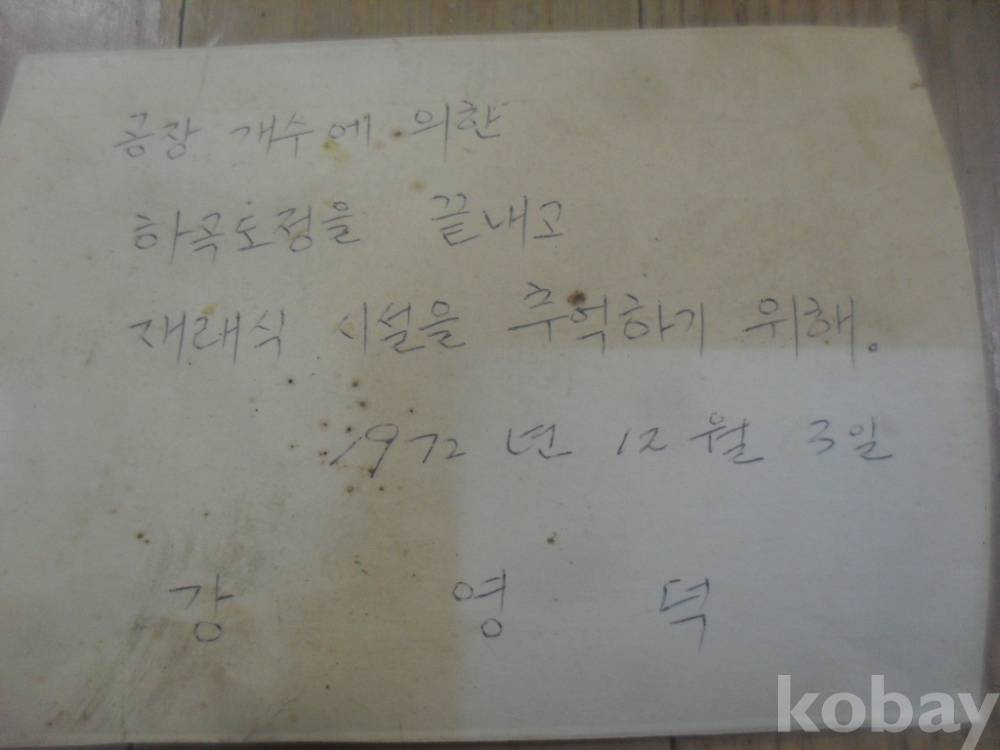 공장 개수에 의한
하곡도정을 끝내고
재래식 시설을 추억하기 위해.
1972년 12월 3일
강 영 덕
kobay